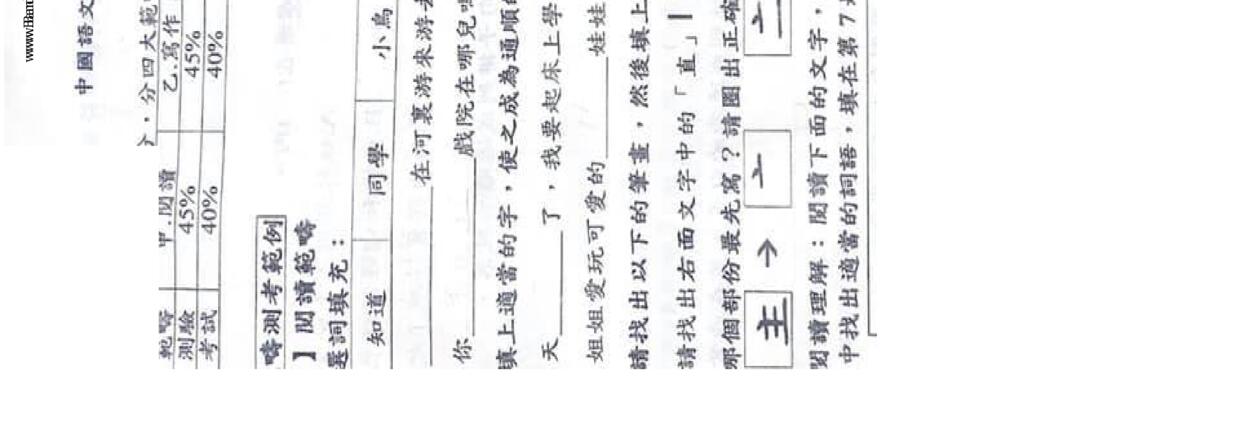 中國語文
，分四大範
範疇 甲.閱讀 乙.寫作
測驗 45% 45%
考試 40% 40%
疇測考範例
】閱讀範疇
選詞填充：
知道 同學 小鳥
______在河裏游來游去
你______戲院在哪兒嗎
填上適當的字，使之成為通順的
天______了，我要起床上學
姐姐愛玩可愛的______娃娃
請找出以下的筆畫，然後填上
請找出右面文字中的「直」|
哪個部份最先寫？請圈出正確
主 → 亠
閱讀理解：閱讀下面的文字，
中找出適當的詞語，填在第7